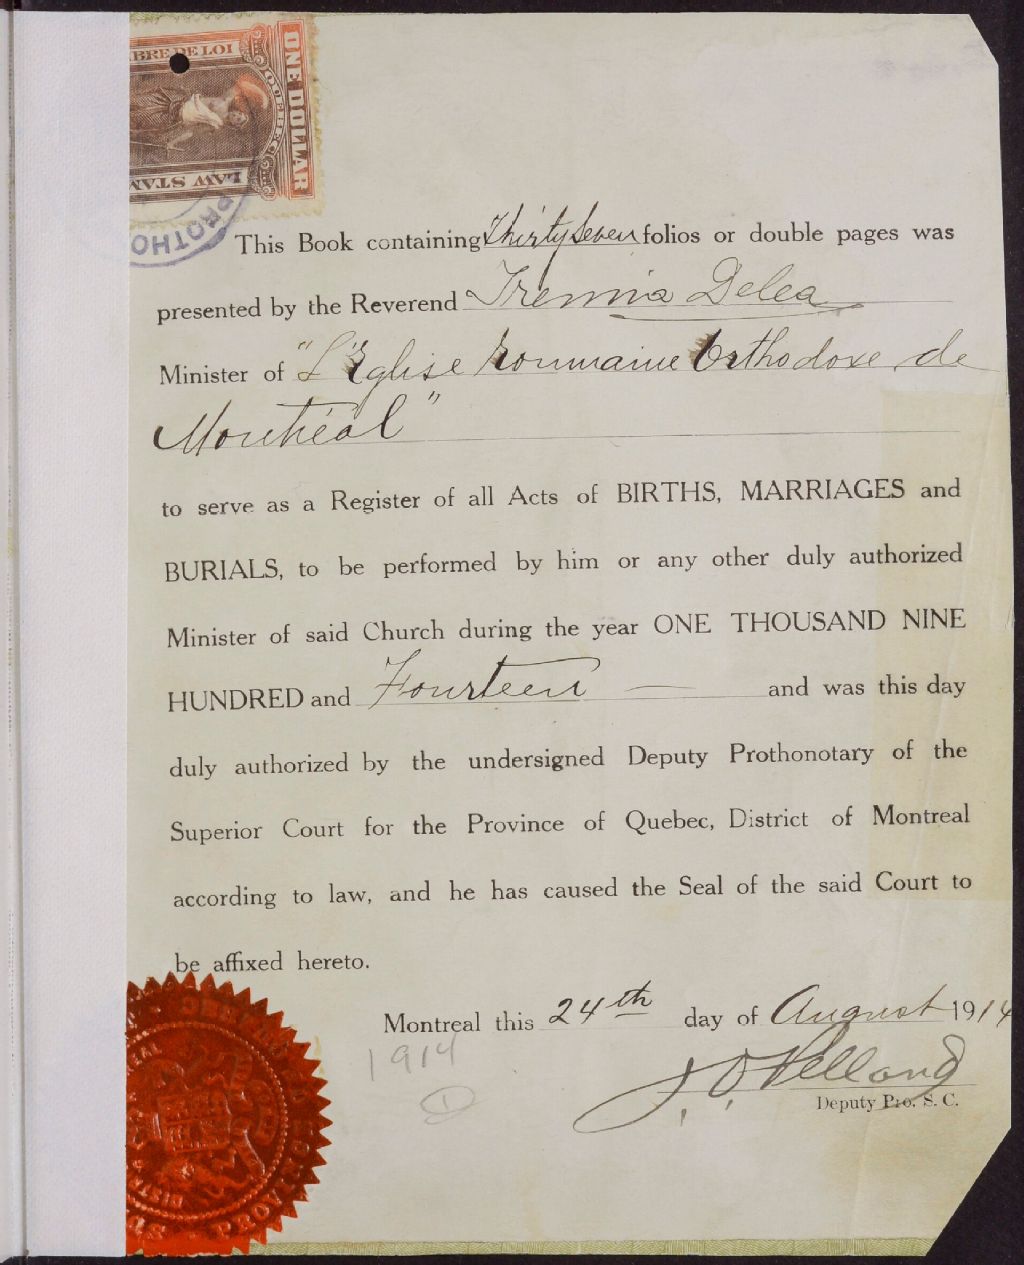 BRE DE LOI
ONE DOLLAR
QUEBEC
LAW STAM
PROTHO
This Book containing Thirty Seven folios or double pages was
presented by the Reverend Delea
Minister of "L'Eglise Roumaine Orthodoxe de
Montréal"
to serve as a Register of all Acts of BIRTHS, MARRIAGES and
BURIALS, to be performed by him or any other duly authorized
Minister of said Church during the year ONE THOUSAND NINE
HUNDRED and Fourteen — and was this day
duly authorized by the undersigned Deputy Prothonotary of the
Superior Court for the Province of Quebec, District of Montreal
according to law, and he has caused the Seal of the said Court to
be affixed hereto.
Montreal this 24th day of August 1914
1914
J. O. Pelland
Deputy Pro. S. C.